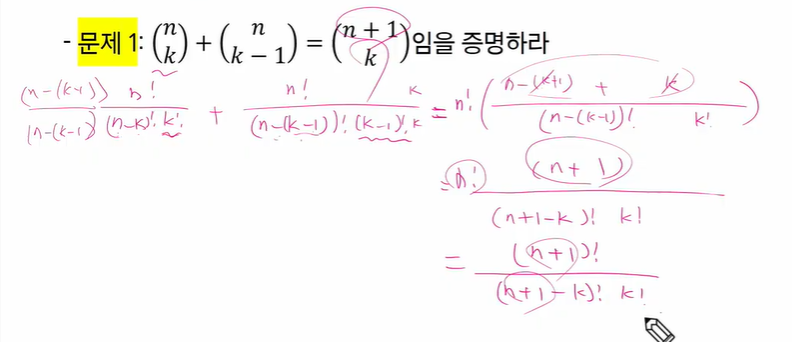 - 문제 1: (n k) + (n k − 1) = (n + 1 k)임을 증명하라
(n-(k-1)) / (n-(k-1)) n! / (n-k)! k! + n! k / (n-(k-1))! (k-1)! k = n! ( n-(k+1) + k / (n-(k-1))! k! )
= n! (n+1) / (n+1-k)! k!
= (n+1)! / (n+1-k)! k!